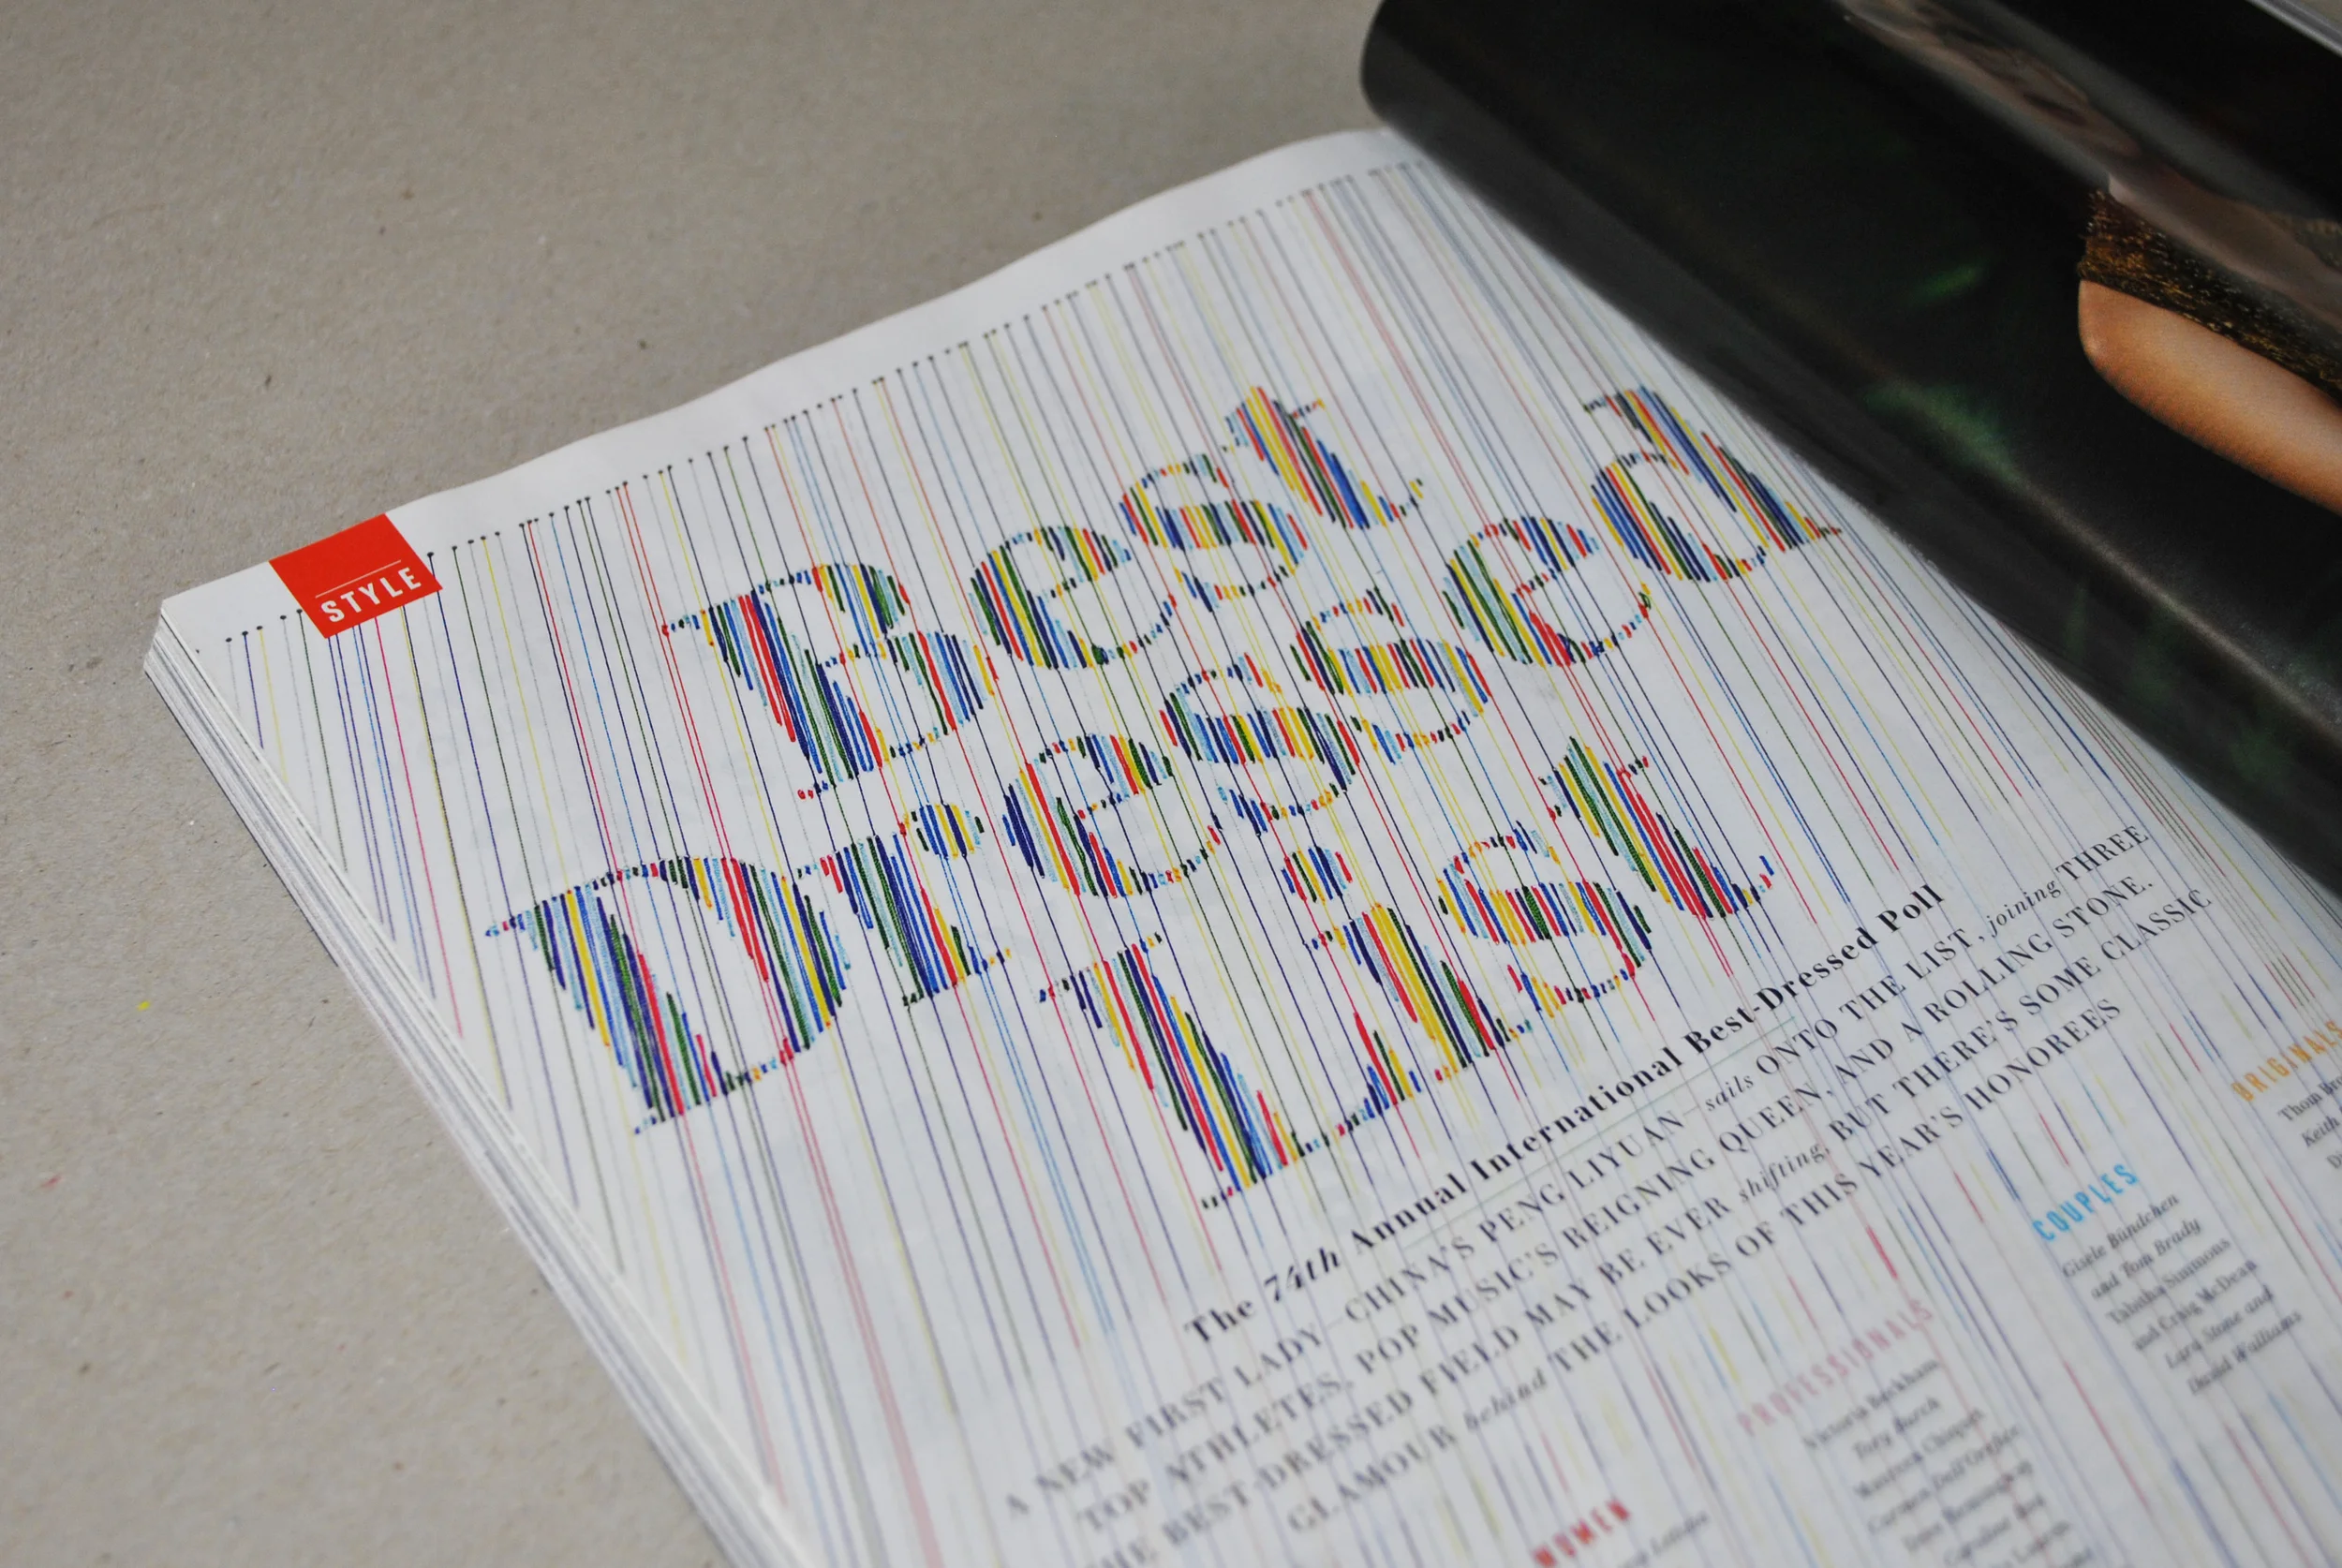 STYLE
Best
Dressed
List
The 74th Annual International Best-Dressed Poll
A NEW FIRST LADY—CHINA'S PENG LIYUAN—sails ONTO THE LIST, joining THREE
TOP ATHLETES, POP MUSIC'S REIGNING QUEEN, AND A ROLLING STONE.
THE BEST-DRESSED FIELD MAY BE EVER shifting, BUT THERE'S SOME CLASSIC
GLAMOUR behind THE LOOKS OF THIS YEAR'S HONOREES
WOMEN
PROFESSIONALS
Victoria Beckham
Tory Burch
COUPLES
Gisele Bündchen
and Tom Brady
Tabitha Simmons
and Craig McDean
Lara Stone and
David Walliams
ORIGINALS
Keith